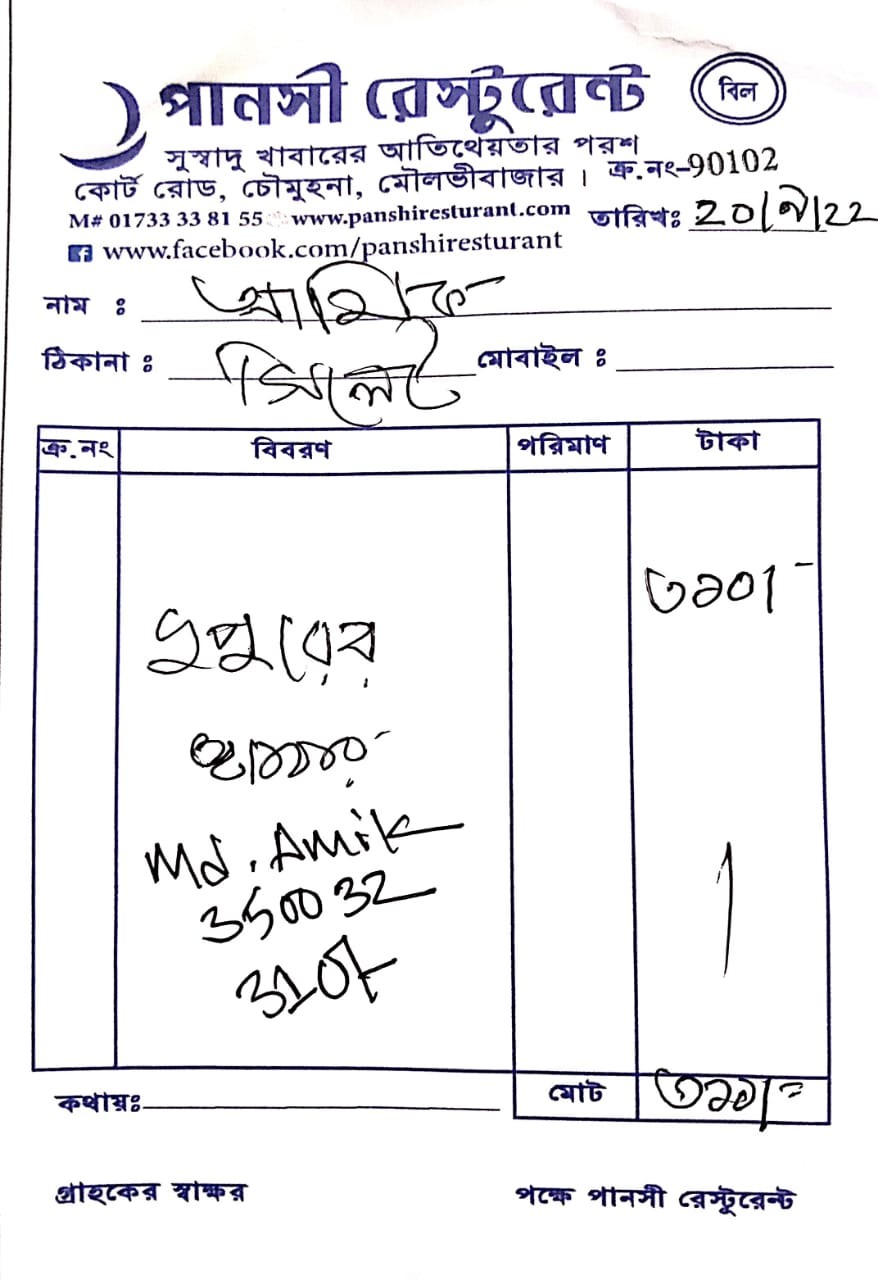 পানসী রেস্টুরেন্ট
বিল
সুস্বাদু খাবারের আতিথেয়তার পরশ
কোর্ট রোড, চৌমুহনা, মৌলভীবাজার। ক্র.নং-90102
M# 01733 33 81 55 www.panshiresturant.com তারিখ: 20/৭/22
www.facebook.com/panshiresturant
নাম : আমিক
ঠিকানা : সিলেট মোবাইল :
ক্র.নং বিবরণ পরিমাণ টাকা
৩১০/-
দুপুরের
খাবার
Md. Amik
350032
310/-
কথায়: মোট ৩১০/=
গ্রাহকের স্বাক্ষর পক্ষে পানসী রেস্টুরেন্ট